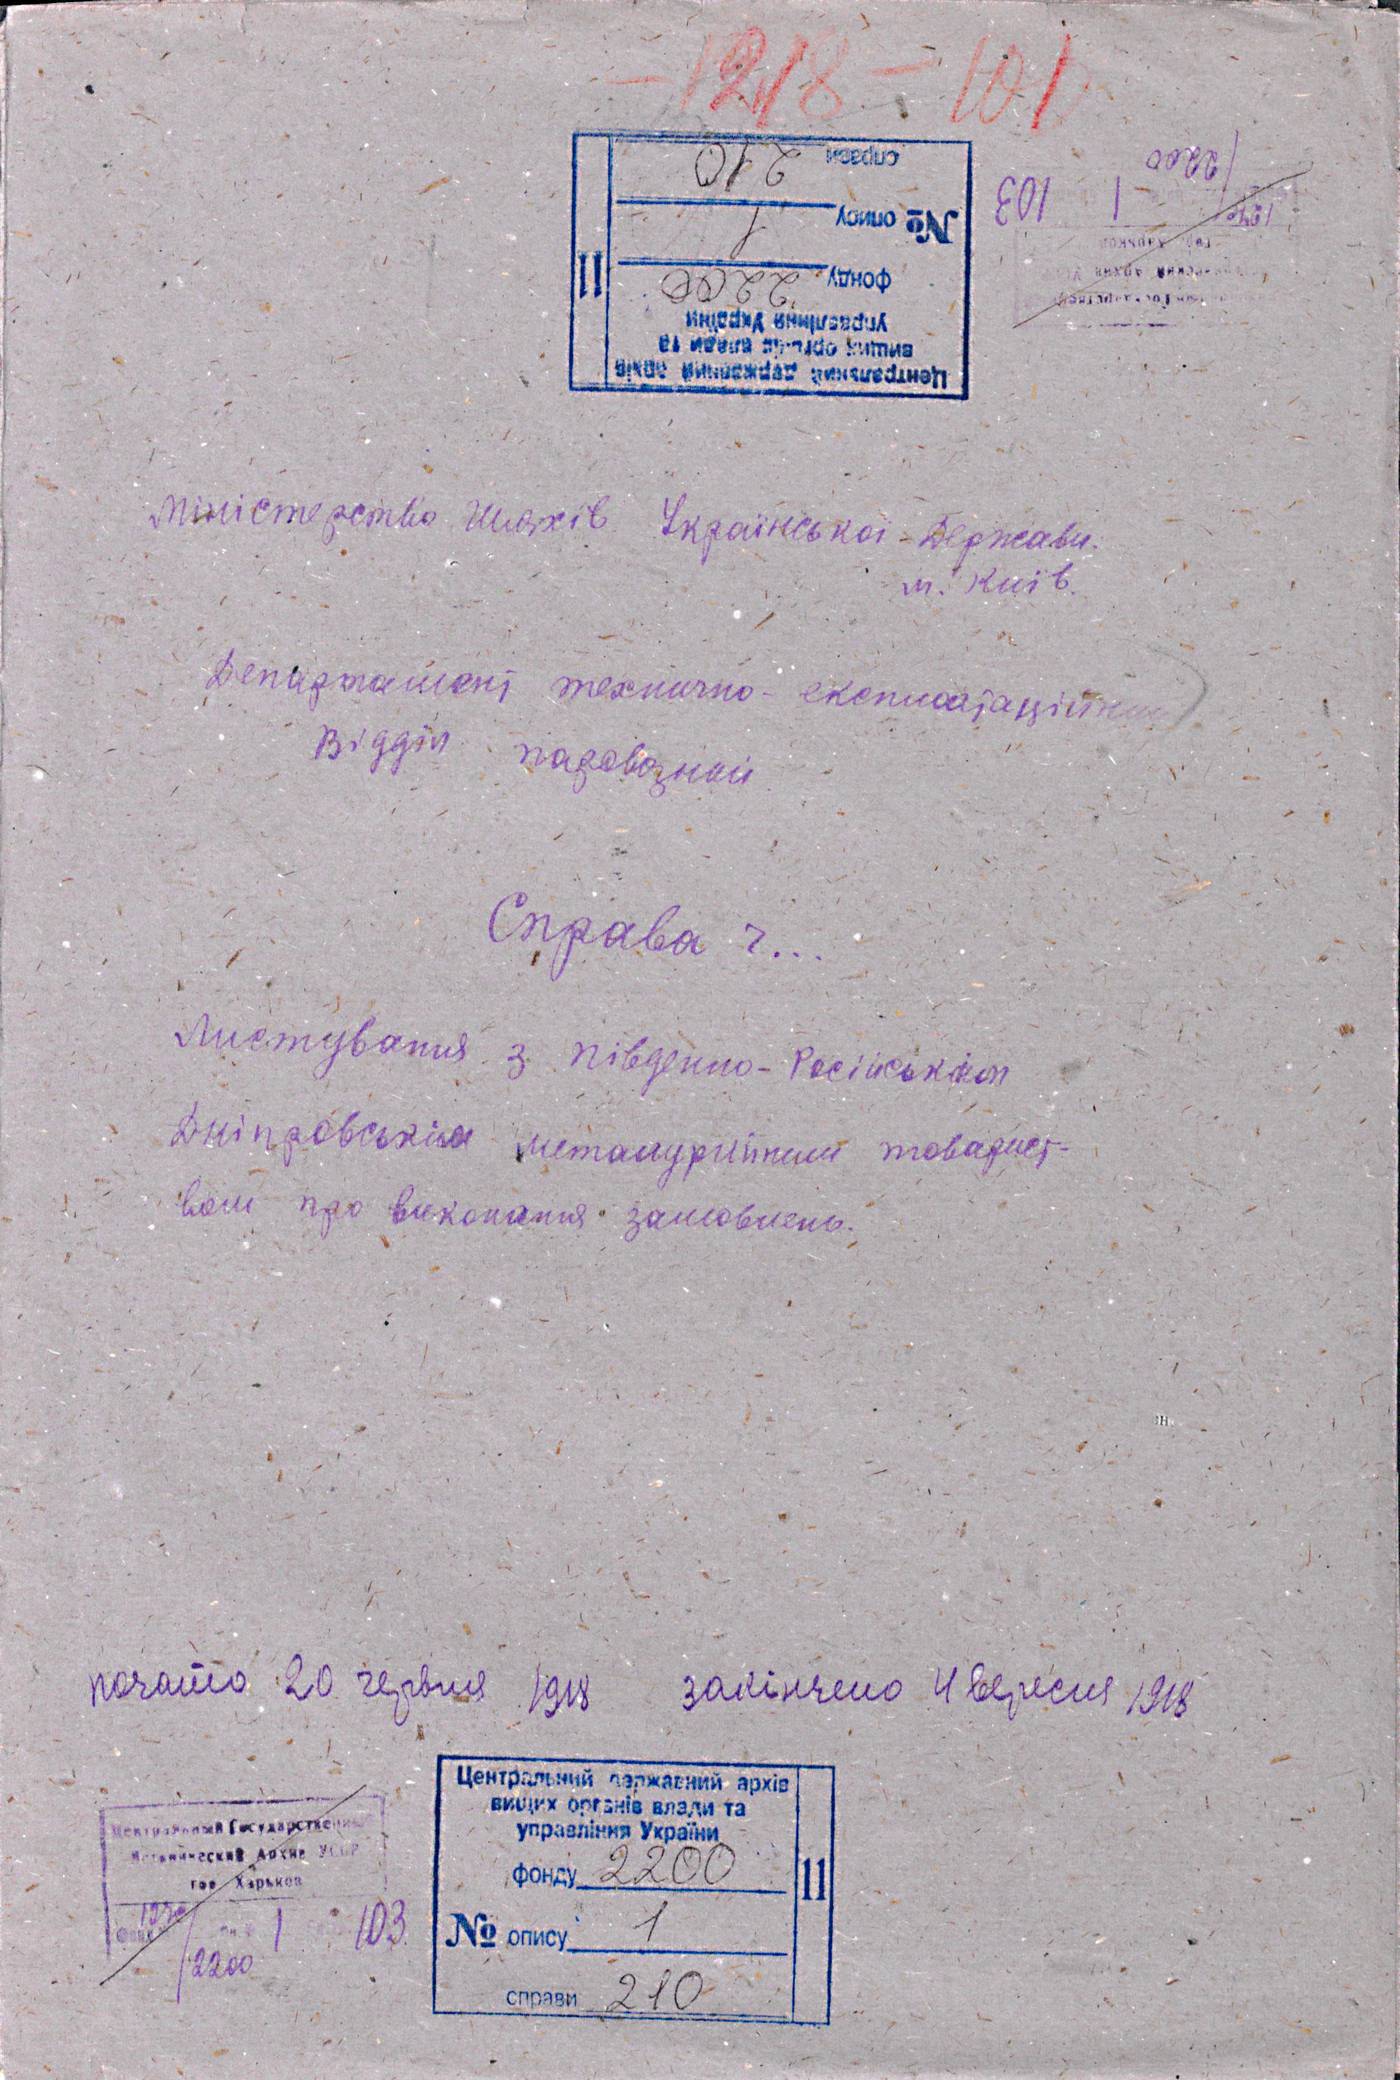 -1218-101
справи 210
№ опису 1
фонду 2200
управління України
вищих органів влади та
Центральний державний архів
11
2200
1 103
гор. Харьков
Міністерство Шляхів Української Держави.
м. Київ.
Департамент технично-експлоатаційний
Відділ паровозний
Справа ч...
Листування з Південно-Російськім
Дніпровськім металургійним товарист-
вом про виконання замовлень.
почато 20 червня 1918 закінчено 4 вересня 1918
Центральный Государственный
Исторический Архив УССР
гор. Харьков
1 103
2200
Центральний державний архів
вищих органів влади та
управління України
фонду 2200
№ опису 1
справи 210
11